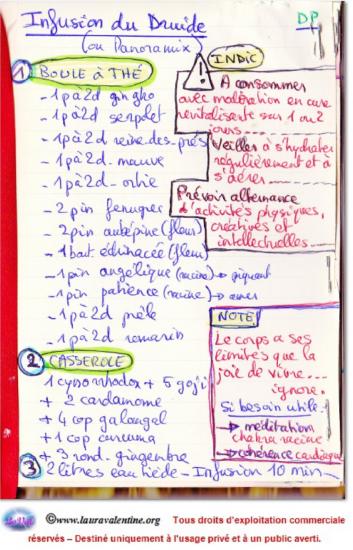 Infusion du Druide
(ou Panoramix)
DP
1 BOULE à THÉ
- 1 p à 2d gingko
- 1 p à 2d serpolet
- 1 p à 2d reine-des-prés
- 1 p à 2d - mauve
- 1 p à 2d - ortie
- 2 pin fenugrec
- 2 pin aubépine (fleur)
- 1 bat. échinacée (fleur)
- 1 pin angélique (racine) → piquant
- 1 pin patience (racine) → amer
- 1 p à 2d prêle
- 1 p à 2d romarin
2 CASSEROLE
1 cynorrhodon + 5 goji
+ 2 cardamome
+ 4 cop galangal
+ 1 cop curcuma
+ 3 rond. gingembre
3 2 litres eau tiède - Infusion 10 min
INDIC
!
A consommer
avec modération en cure
revitalisante sur 1 ou 2
jours
Veillez à s'hydrater
régulièrement et à
s'aérer
Prévoir alternance
d'activités physiques,
créatives et
intellectuelles
NOTE
Le corps a ses
limites que la
joie de vivre...
ignore.
Si besoin utile :
→ méditation
chakra racine
→ cohérence cardiaque
©www.lauravalentine.org Tous droits d'exploitation commerciale
réservés – Destiné uniquement à l'usage privé et à un public averti.